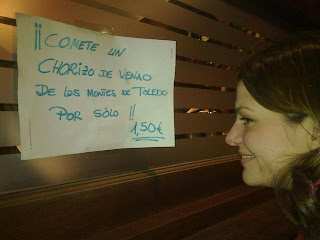 ¡¡ CONETE UN
CHORIZO DE VENAO
DE LOS MONTES DE TOLEDO
POR SÓLO !!
1,50€